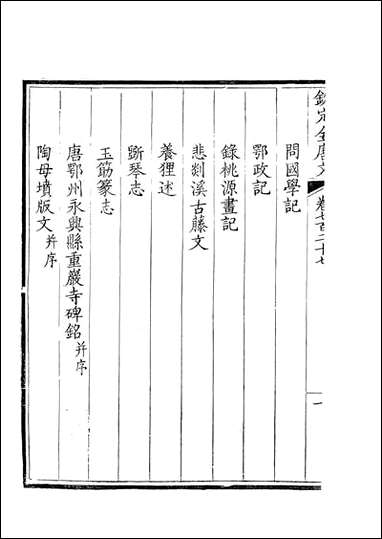 欽定全唐文　卷七百二十七　一
問國學記
鄂政記
錄桃源畫記
悲剡溪古藤文
養狸述
斲琴志
玉筯篆志
唐鄂州永興縣重巖寺碑銘并序
陶母墳版文并序